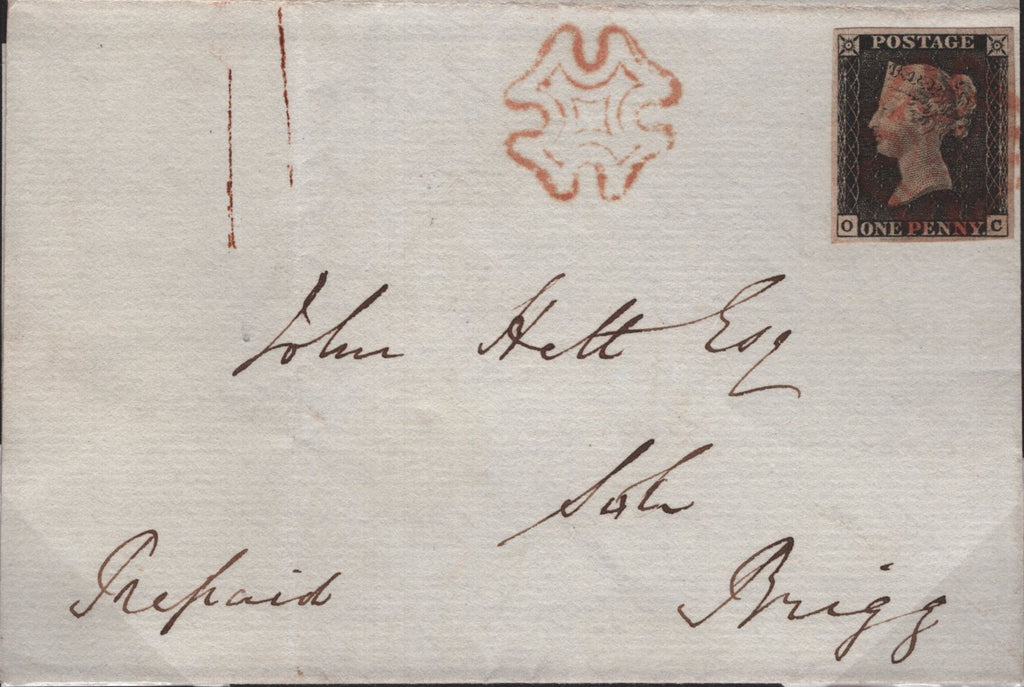 POSTAGE
O ONE PENNY C
John Hett Esq
Solr
Prepaid Brigg